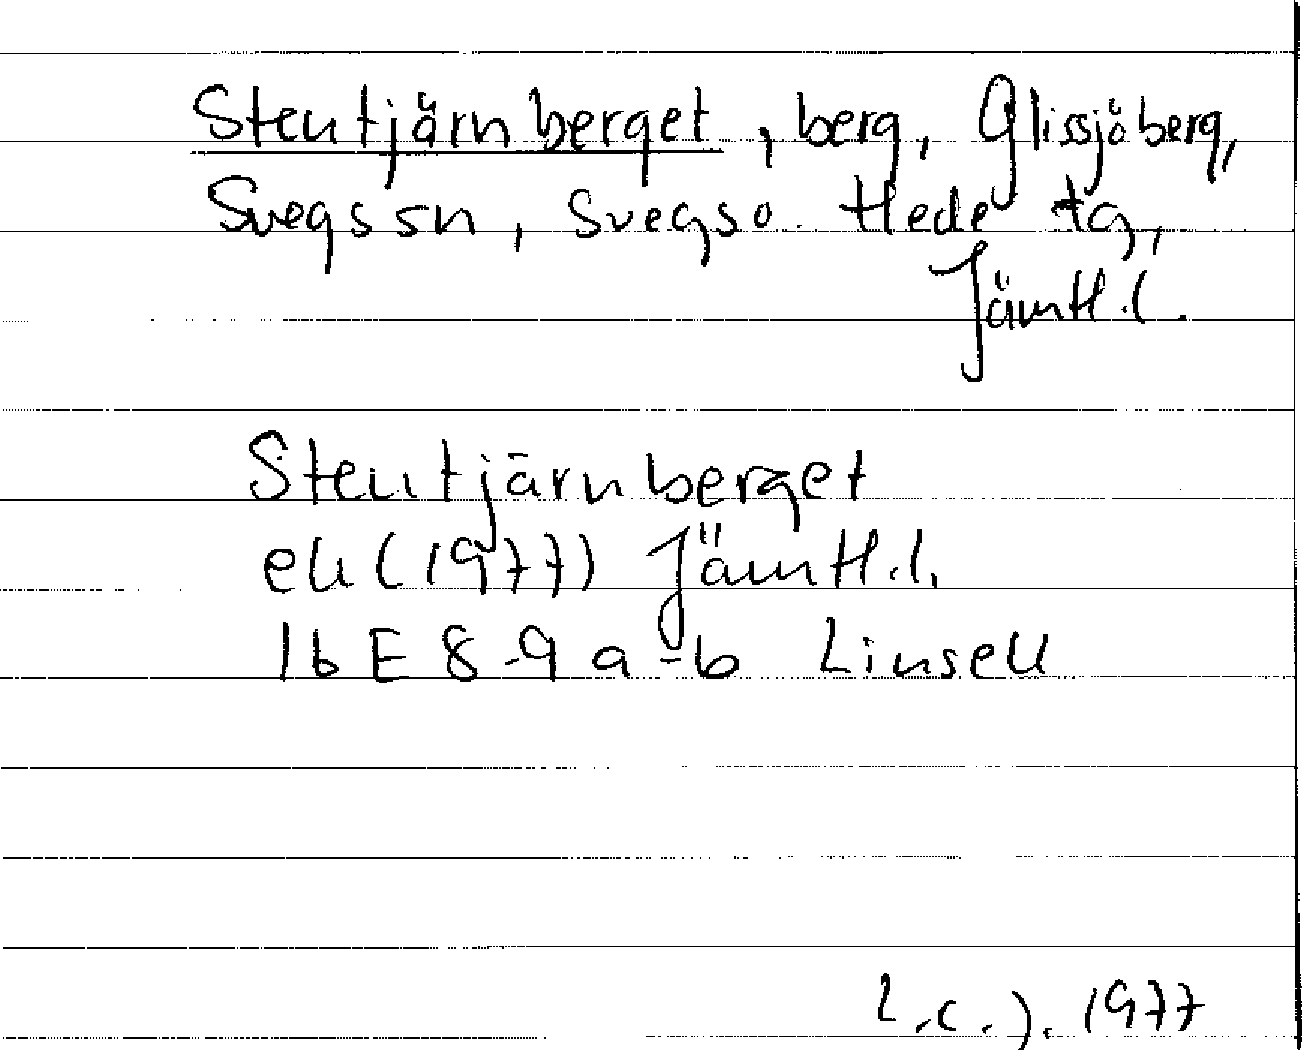 Stentjärnberget, berg, Glissjöberg,
Svegs sn, Svegs o Hede tg,
Jämtl. l.
Stentjärnberget
ek (1977) Jämtl. l.
16 E 8-9 a-b Linsell
L.C.J. 1977